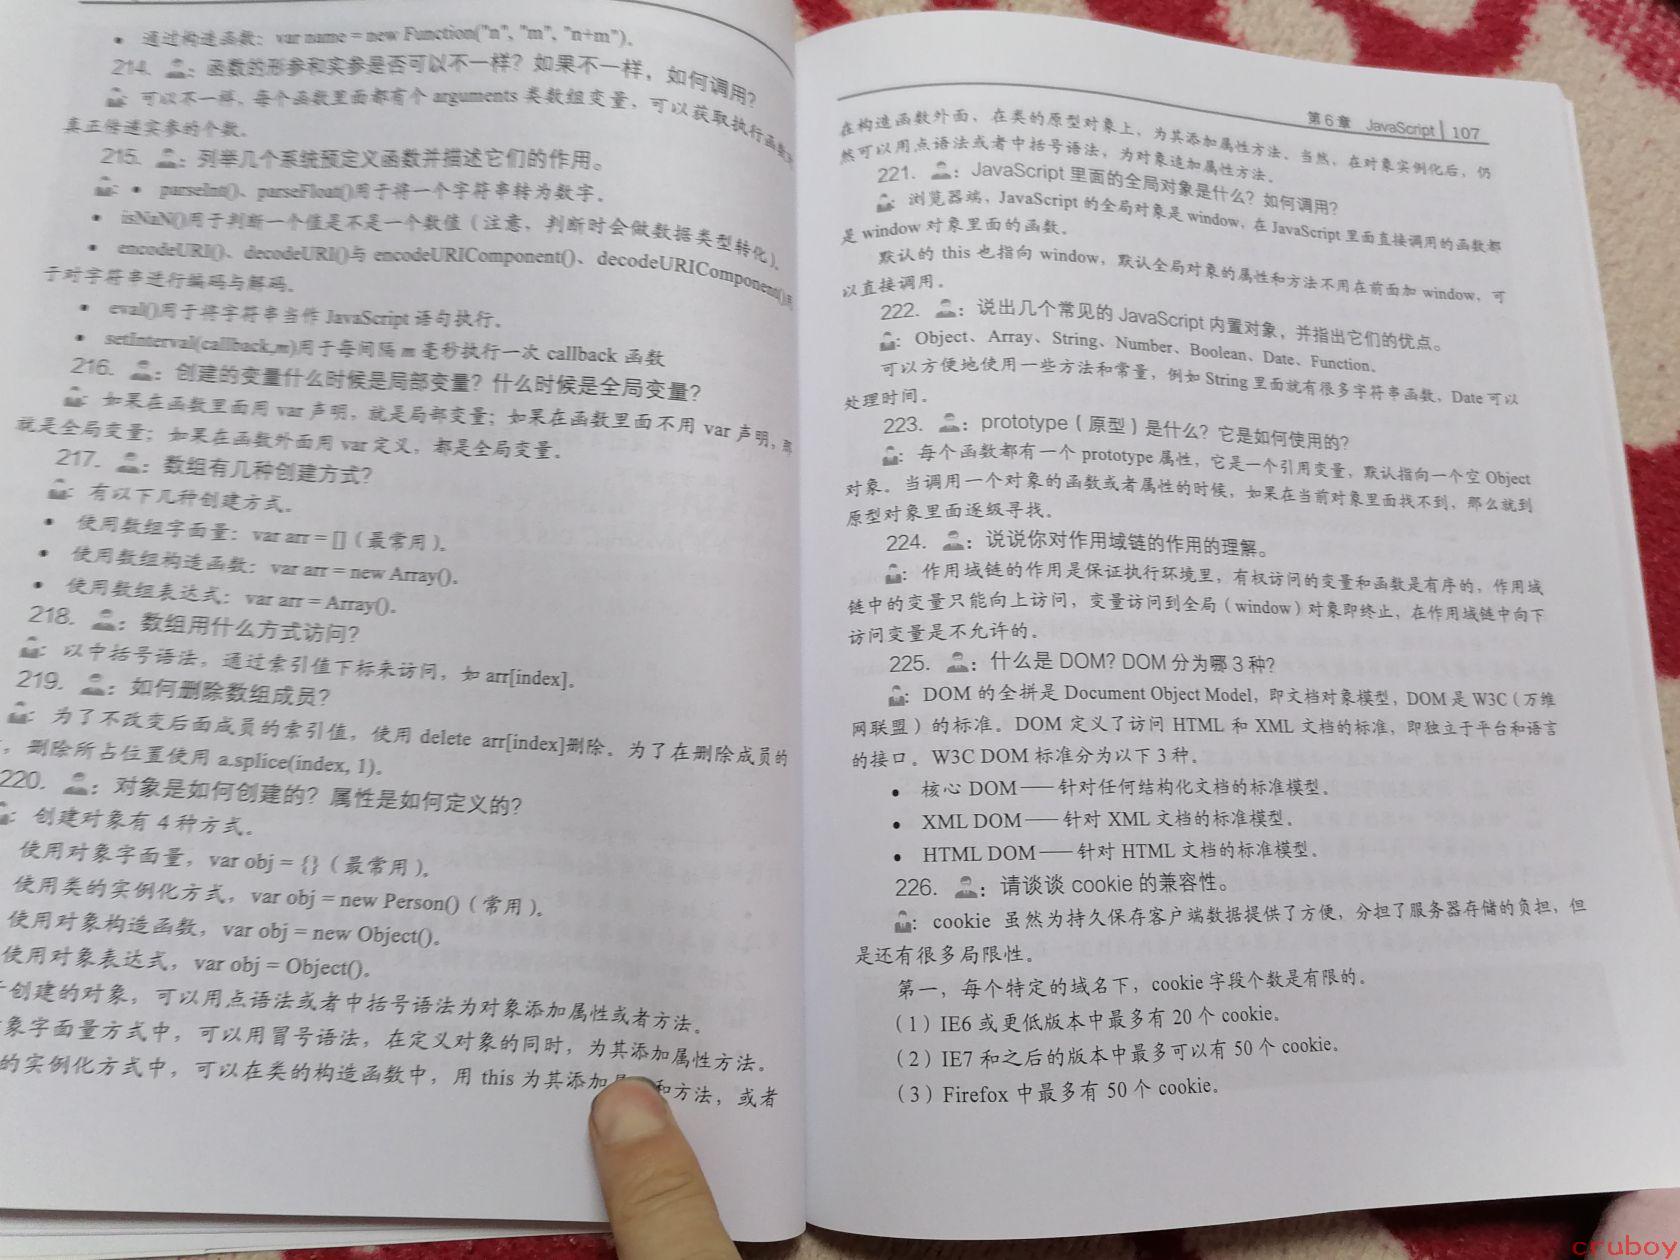 • 通过构造函数：var name = new Function("n", "m", "n+m")。
214. ：函数的形参和实参是否可以不一样？如果不一样，如何调用？
：可以不一样，每个函数里面都有个 arguments 类数组变量，可以获取执行函数
真正传递实参的个数。
215. ：列举几个系统预定义函数并描述它们的作用。
：• parseInt()、parseFloat()用于将一个字符串转为数字。
• isNaN()用于判断一个值是不是一个数值（注意，判断时会做数据类型转化）。
• encodeURI()、decodeURI()与 encodeURIComponent()、decodeURIComponent()用
于对字符串进行编码与解码。
• eval()用于将字符串当作 JavaScript 语句执行。
• setInterval(callback,m)用于每间隔 m 毫秒执行一次 callback 函数
216. ：创建的变量什么时候是局部变量？什么时候是全局变量？
：如果在函数里面用 var 声明，就是局部变量；如果在函数里面不用 var 声明，那
就是全局变量；如果在函数外面用 var 定义，都是全局变量。
217. ：数组有几种创建方式？
：有以下几种创建方式。
• 使用数组字面量：var arr = []（最常用）。
• 使用数组构造函数：var arr = new Array()。
• 使用数组表达式：var arr = Array()。
218. ：数组用什么方式访问？
：以中括号语法，通过索引值下标来访问，如 arr[index]。
219. ：如何删除数组成员？
：为了不改变后面成员的索引值，使用 delete arr[index]删除。为了在删除成员的
，删除所占位置使用 a.splice(index, 1)。
220. ：对象是如何创建的？属性是如何定义的？
：创建对象有 4 种方式。
使用对象字面量，var obj = {}（最常用）。
使用类的实例化方式，var obj = new Person()（常用）。
使用对象构造函数，var obj = new Object()。
使用对象表达式，var obj = Object()。
创建的对象，可以用点语法或者中括号语法为对象添加属性或者方法。
象字面量方式中，可以用冒号语法，在定义对象的同时，为其添加属性方法。
的实例化方式中，可以在类的构造函数中，用 this 为其添加 和方法，或者
第 6 章 JavaScript 107
在构造函数外面，在类的原型对象上，为其添加属性方法。当然，在对象实例化后，仍
然可以用点语法或者中括号语法，为对象追加属性方法。
221. ：JavaScript 里面的全局对象是什么？如何调用？
：浏览器端，JavaScript 的全局对象是 window，在 JavaScript 里面直接调用的函数都
是 window 对象里面的函数。
默认的 this 也指向 window，默认全局对象的属性和方法不用在前面加 window，可
以直接调用。
222. ：说出几个常见的 JavaScript 内置对象，并指出它们的优点。
：Object、Array、String、Number、Boolean、Date、Function。
可以方便地使用一些方法和常量，例如 String 里面就有很多字符串函数，Date 可以
处理时间。
223. ：prototype（原型）是什么？它是如何使用的？
：每个函数都有一个 prototype 属性，它是一个引用变量，默认指向一个空 Object
对象。当调用一个对象的函数或者属性的时候，如果在当前对象里面找不到，那么就到
原型对象里面逐级寻找。
224. ：说说你对作用域链的作用的理解。
：作用域链的作用是保证执行环境里，有权访问的变量和函数是有序的，作用域
链中的变量只能向上访问，变量访问到全局（window）对象即终止，在作用域链中向下
访问变量是不允许的。
225. ：什么是 DOM？DOM 分为哪 3 种？
：DOM 的全拼是 Document Object Model，即文档对象模型，DOM 是 W3C（万维
网联盟）的标准。DOM 定义了访问 HTML 和 XML 文档的标准，即独立于平台和语言
的接口。W3C DOM 标准分为以下 3 种。
• 核心 DOM——针对任何结构化文档的标准模型。
• XML DOM——针对 XML 文档的标准模型。
• HTML DOM——针对 HTML 文档的标准模型。
226. ：请谈谈 cookie 的兼容性。
：cookie 虽然为持久保存客户端数据提供了方便，分担了服务器存储的负担，但
是还有很多局限性。
第一，每个特定的域名下，cookie 字段个数是有限的。
（1）IE6 或更低版本中最多有 20 个 cookie。
（2）IE7 和之后的版本中最多可以有 50 个 cookie。
（3）Firefox 中最多有 50 个 cookie。
cruboy